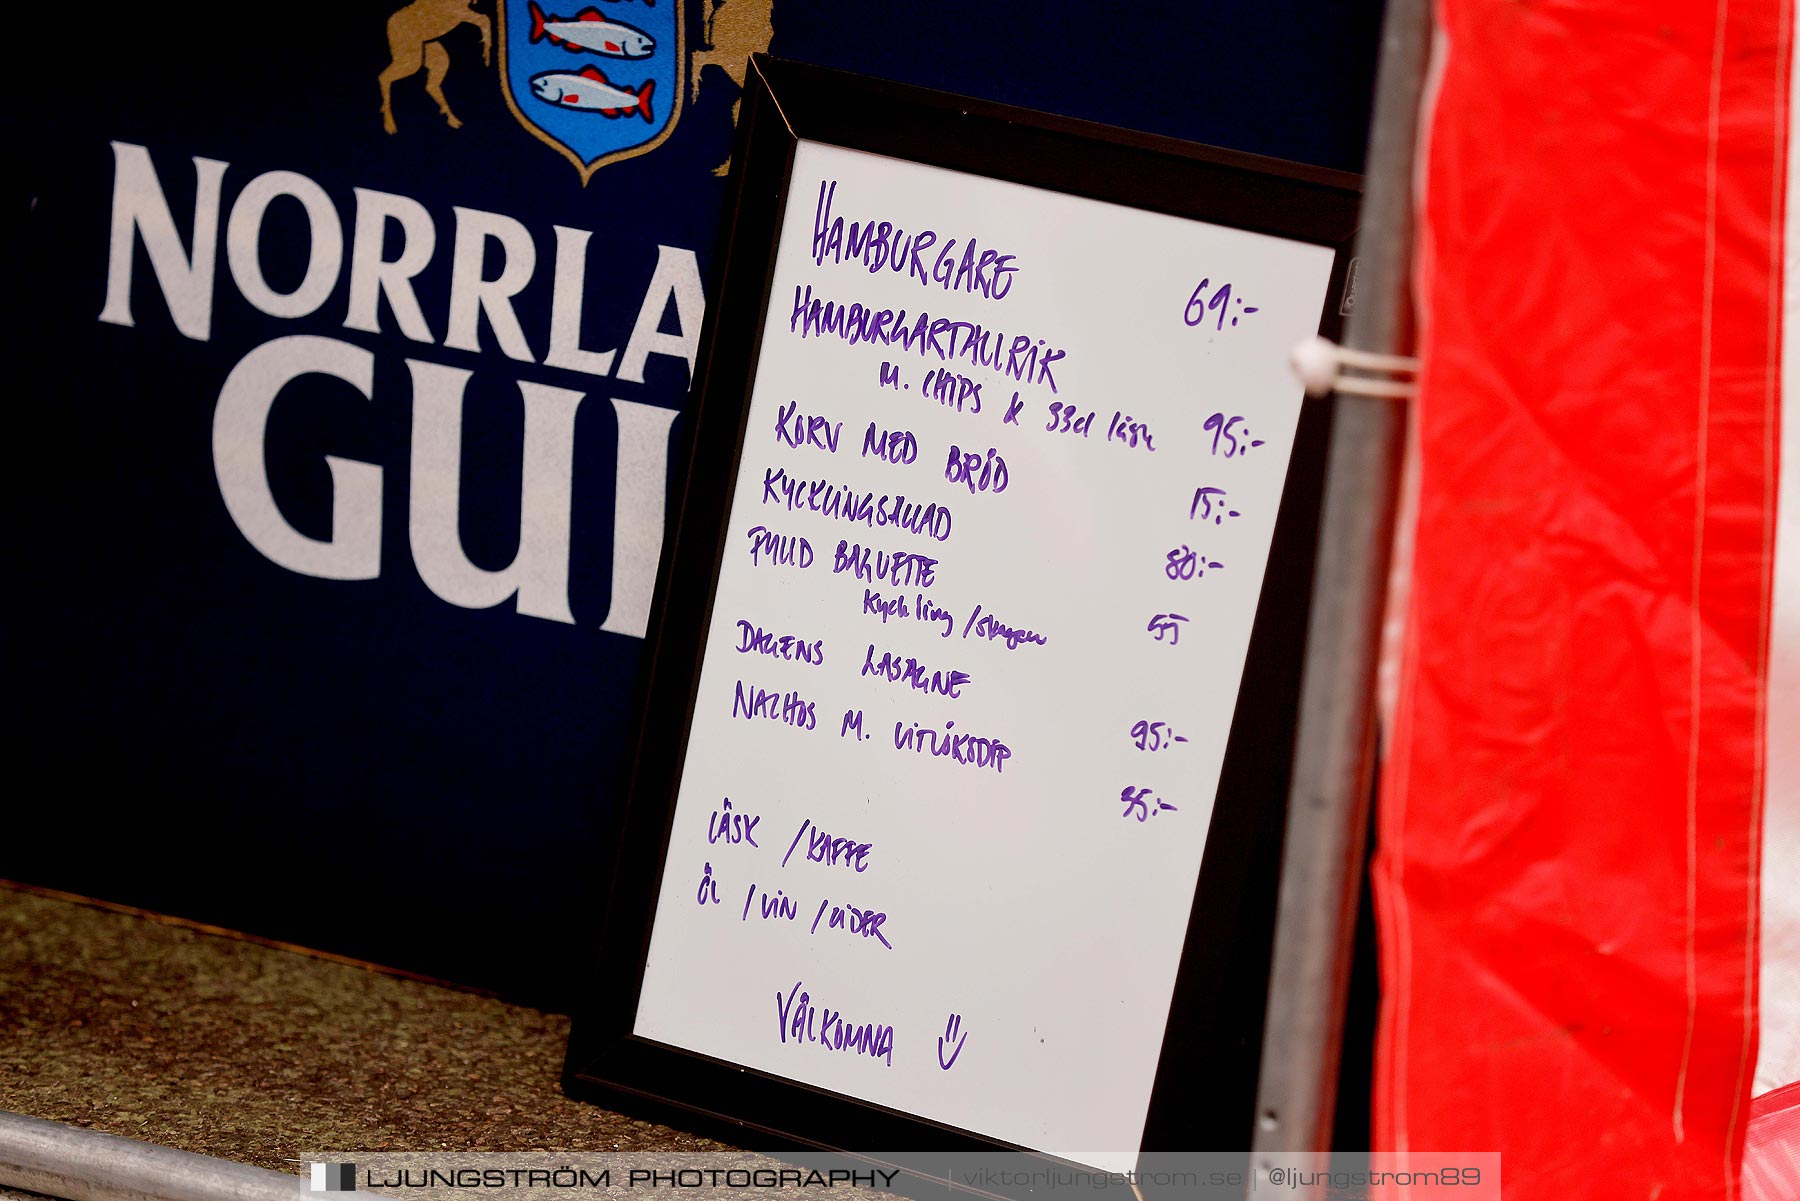 NORRLA
GUL
HAMBURGARE 69:-
HAMBURGARTALLRIK
M. CHIPS & 33cl läsk 95:-
KORV MED BRÖD 15:-
KYCKLINGSALLAD 80:-
FYLLD BAGUETTE
Kyckling /skagen 55
DAGENS LASAGNE 95:-
NACHOS M. VITLÖKSDIP 35:-
LÄSK /KAFFE
ÖL /VIN /CIDER
VÄLKOMNA
LJUNGSTRÖM PHOTOGRAPHY | viktorljungstrom.se | @ljungstrom89